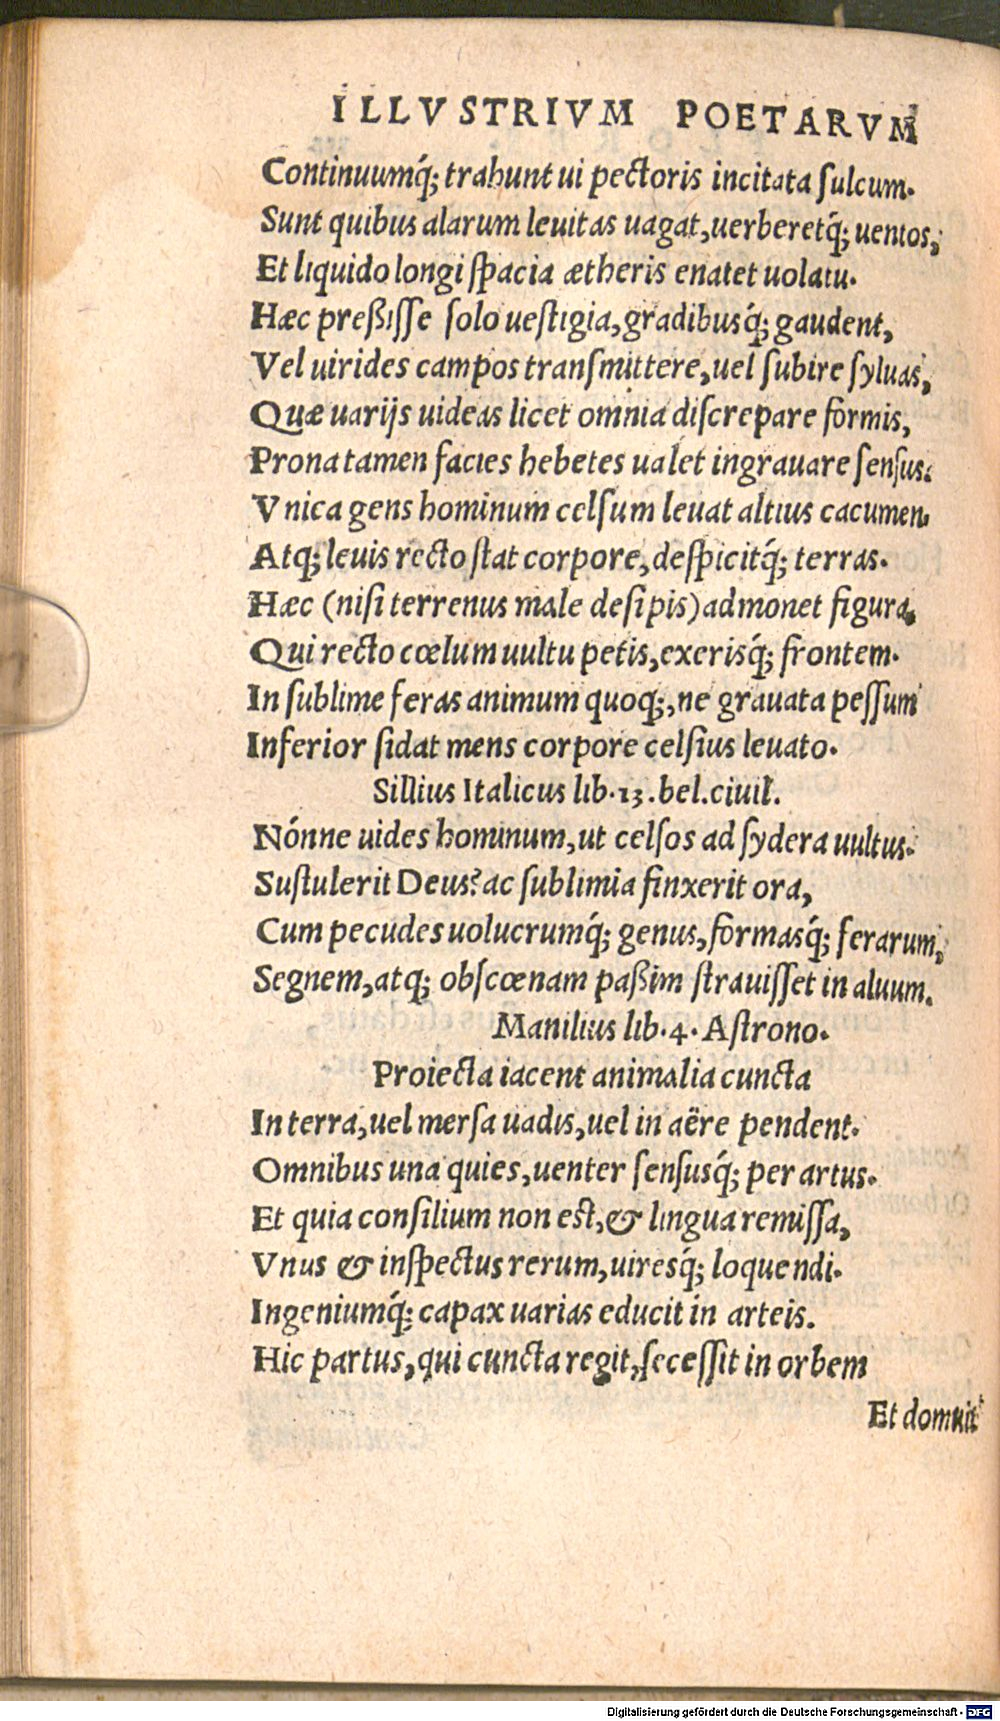 ILLVSTRIVM POETARVM
Continuumq́; trahunt ui pectoris incitata sulcum.
Sunt quibus alarum leuitas uagat, uerberetq́; uentos,
Et liquido longi spacia ætheris enatet uolatu.
Hæc preßisse solo uestigia, gradibusq́; gaudent,
Vel uirides campos transmittere, uel subire syluas,
Quæ uarijs uideas licet omnia discrepare formis,
Prona tamen facies hebetes ualet ingrauare sensus.
Vnica gens hominum celsum leuat altius cacumen.
Atq; leuis recto stat corpore, despicitq́; terras.
Hæc (nisi terrenus male desipis) admonet figura,
Qui recto cœlum uultu petis, exerisq́; frontem.
In sublime feras animum quoq;, ne grauata pessum
Inferior sidat mens corpore celsius leuato.
Sillius Italicus lib. 13. bel. ciuil.
Nónne uides hominum, ut celsos ad sydera uultus.
Sustulerit Deus? ac sublimia finxerit ora,
Cum pecudes uolucrumq́; genus, formasq́; ferarum,
Segnem, atq; obscœnam paßim strauisset in aluum.
Manilius lib. 4. Astrono.
Proiecta iacent animalia cuncta
In terra, uel mersa uadis, uel in aëre pendent.
Omnibus una quies, uenter sensusq́; per artus.
Et quia consilium non est, & lingua remissa,
Vnus & inspectus rerum, uiresq́; loquendi.
Ingeniumq́; capax uarias educit in arteis.
Hic partus, qui cuncta regit, secessit in orbem
Et domuit
Digitalisierung gefördert durch die Deutsche Forschungsgemeinschaft - DFG